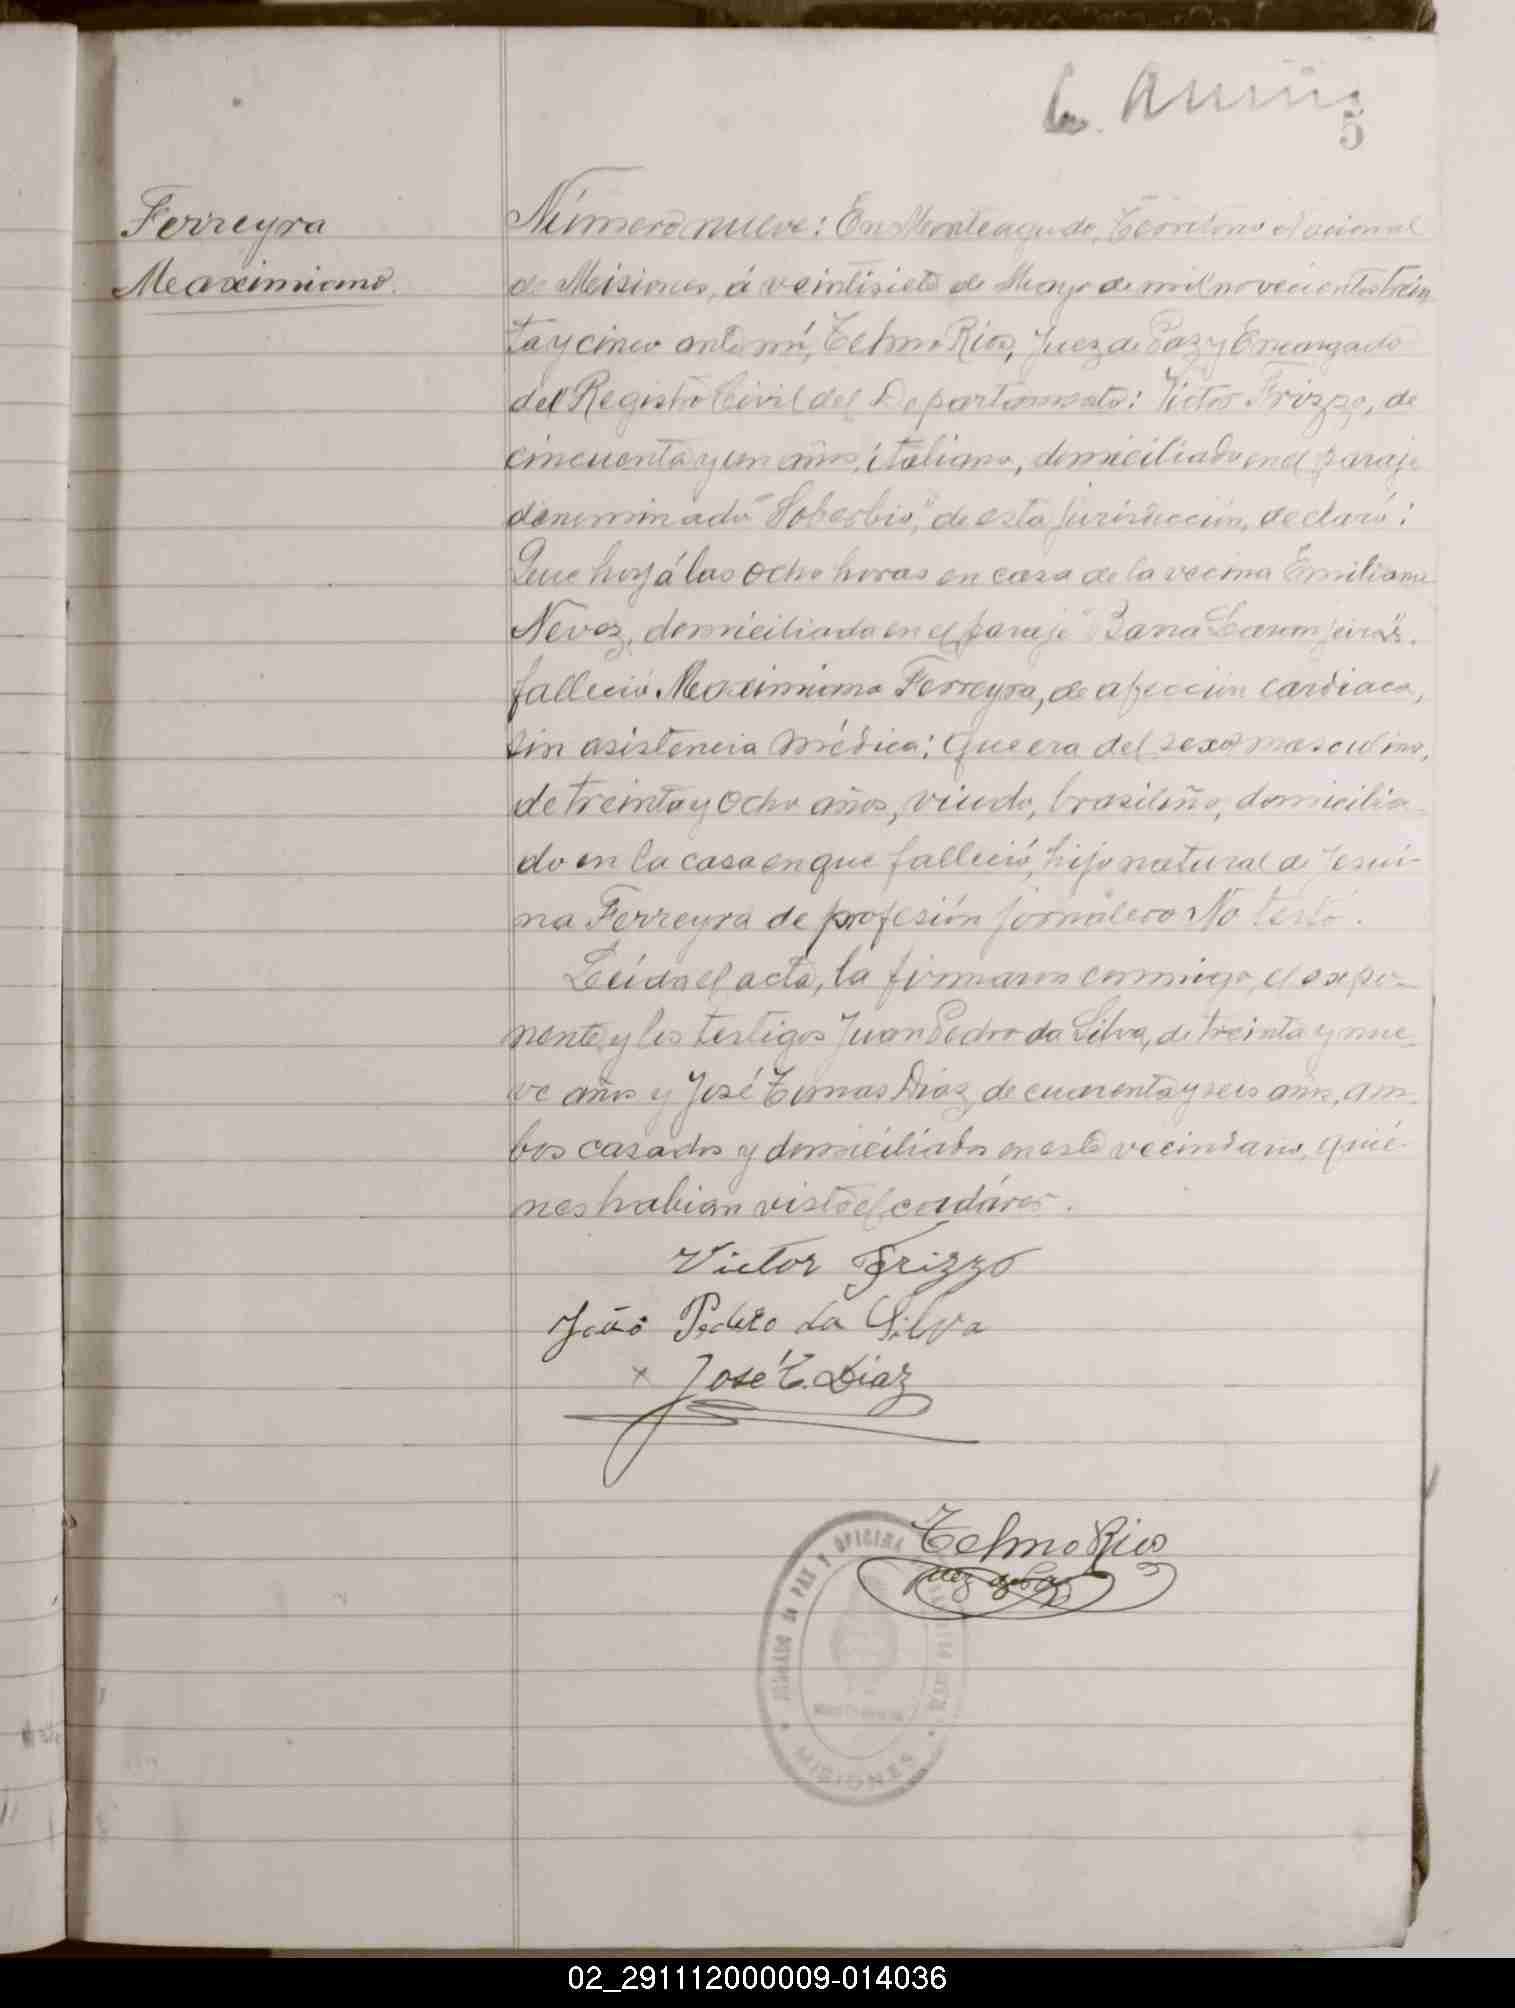 5
Ferreyra
Maximiano.
Número nueve: En Monteagudo, Territorio Nacional
de Misiones, á veintisiete de Mayo de mil novecientos trein
ta y cinco ante mí, Telmo Rios, Juez de Paz y Encargado
del Registro Civil del Departamento: Victor Frizzo, de
cincuenta y un años, italiano, domiciliado en el paraje
denominado "Soberbio," de esta jurisdicción, declaró:
Que hoy á las ocho horas en casa de la vecina Emiliana
Nevez, domiciliada en el paraje "Barra Laranjeiras".
falleció Maximiano Ferreyra, de afección cardiaca,
sin asistencia médica; que era del sexo masculino,
de treinta y ocho años, viudo, brasileño, domicilia-
do en la casa en que falleció, hijo natural de Jesui-
na Ferreyra de profesión jornalero No testó.
Leída el acta, la firmaron conmigo, el expo-
nente y los testigos Juan Pedro da Silva, de treinta y nue-
ve años y José Tomas Diaz, de cuarenta y seis años, am-
bos casados y domiciliados en este vecindario, quié-
nes habian visto el cadáver.
Victor Frizzo
João Pedro da Silva
x José T. Diaz
Telmo Rios
Juez de Paz
JUZGADO DE PAZ Y OFICINA
MISIONES
02_291112000009-014036